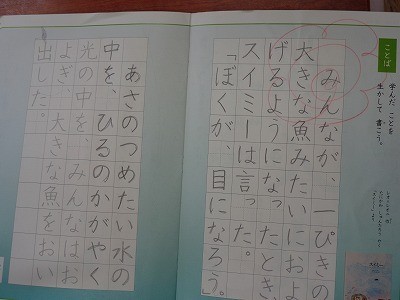 ことば
学んだ ことを
生かして 書こう。
みんなが、一ぴきの
大きな魚みたいにおよ
げるようになったとき、
スイミーは言った。
「ぼくが、目になろう。」
あさのつめたい水の
中を、ひるのかがやく
光の中を、みんなはお
よぎ、大きな魚をおい
出した。